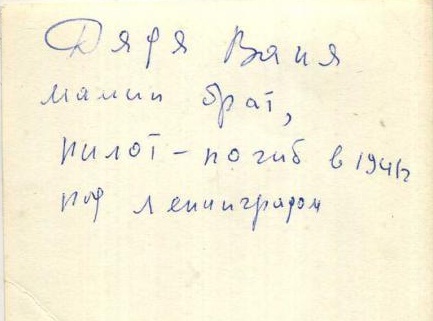 Дядя Ваня
мамин брат,
пилот - погиб в 1941г
под Ленинградом